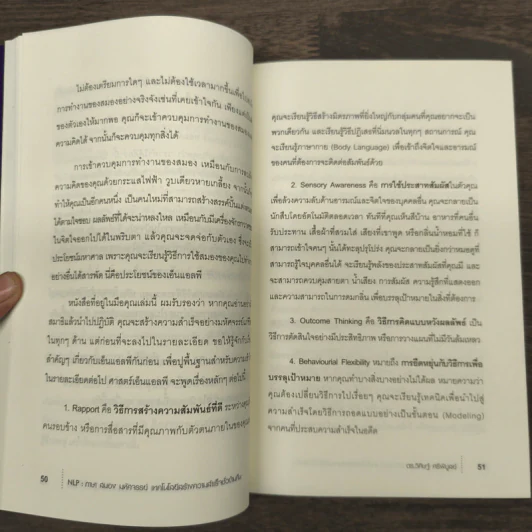 ไม่ต้องเตรียมการใดๆ และไม่ต้องใช้เวลามากขึ้นเพื่อ
การทำงานของสมองอย่างจริงจังเช่นที่เคยเข้าใจกัน เพียง
ของตัวเองให้มากพอ คุณก็จะควบคุมการทำงานของสมอง
ความคิดได้ จากนั้นก็จะควบคุมทุกสิ่งได้
การเข้าควบคุมการทำงานของสมอง เหมือนกับการ
ความคิดของคุณด้วยกระแสไฟฟ้า วูบเดียวหายเกลี้ยง จากนั้น
ทำให้คุณเป็นอีกคนหนึ่ง เป็นคนใหม่ที่สามารถสร้างสรรค์
ได้ตามใจชอบ ผลลัพธ์ที่ได้จะน่าหลงใหล เหมือนกับมีเครื่องจักร
ในจิตใจออกไปได้ในพริบตา แล้วคุณจะจดจ่อกับตัวเอง
ประโยชน์มหาศาล เพราะคุณจะเรียนรู้วิธีการใช้สมองของคุณ
อย่างอื่นได้สารพัด นี่คือประโยชน์ของเอ็นแอลพี
หนังสือที่อยู่ในมือคุณเล่มนี้ ผมรับรองว่า หากคุณอ่าน
สมาธิแล้วนำไปปฏิบัติ คุณจะสร้างความสำเร็จอย่างมหัศจรรย์
ในทุกๆ ด้าน แต่ก่อนที่จะลงไปในรายละเอียด ขอให้คุณได้รู้จัก
สำคัญๆ เกี่ยวกับเอ็นแอลพีกันก่อน เพื่อปูพื้นฐานสำหรับ
ในรายละเอียดต่อไป ศาสตร์เอ็นแอลพี จะพูดเรื่องหลักๆ ต่อไปนี้
1. Rapport คือ วิธีการสร้างความสัมพันธ์ที่ดี ระหว่าง
คนรอบข้าง หรือการสื่อสารที่มีคุณภาพกับตัวตนภายในของคุณ
50
NLP : ภาษา สมอง มหัศจรรย์
คุณจะเรียนรู้วิธีสร้างมิตรภาพที่ยิ่งใหญ่กับกลุ่มคนที่คุณอยากจะเป็น
พวกเดียวกัน และเรียนรู้วิธีปฏิเสธที่นิ่มนวลในทุกๆ สถานการณ์ คุณ
จะเรียนรู้ภาษากาย (Body Language) เพื่อเข้าถึงจิตใจและอารมณ์
ของคนที่ต้องการจะติดต่อสัมพันธ์ด้วย
2. Sensory Awareness คือ การใช้ประสาทสัมผัสในตัวคุณ
เพื่อล้วงความลับด้านอารมณ์และจิตใจของบุคคลอื่น คุณจะกลายเป็น
นักสืบโดยอัตโนมัติตลอดเวลา ทันทีที่คุณเห็นสีบ้าน อาหารที่คนอื่น
รับประทาน เสื้อผ้าที่สวมใส่ เสียงที่เขาพูด หรือกลิ่นน้ำหอมที่ใช้ ก็
สามารถเข้าใจคนๆ นั้นได้ทะลุปรุโปร่ง คุณจะกลายเป็นยิ่งกว่าหมอดูที่
สามารถรู้ใจบุคคลอื่นได้ จะเรียนรู้พลังของประสาทสัมผัสที่คุณมี และ
จะสามารถควบคุมสายตา น้ำเสียง การสัมผัส ความรู้สึกที่แสดงออก
และความสามารถในการดมกลิ่น เพื่อบรรลุเป้าหมายในสิ่งที่ต้องการ
3. Outcome Thinking คือ วิธีการคิดแบบหวังผลลัพธ์ เป็น
วิธีการตัดสินใจอย่างมีประสิทธิภาพ หรือการวางแผนที่ไม่มีวันล้มเหลว
4. Behavioural Flexibility หมายถึง การยืดหยุ่นกับวิธีการเพื่อ
บรรลุเป้าหมาย หากคุณทำบางสิ่งบางอย่างไม่ได้ผล หมายความว่า
คุณต้องเปลี่ยนวิธีการไปเรื่อยๆ คุณจะเรียนรู้เทคนิคเพื่อนำไปสู่
ความสำเร็จโดยวิธีการถอดแบบอย่างเป็นขั้นตอน (Modeling)
จากคนที่ประสบความสำเร็จในอดีต
51